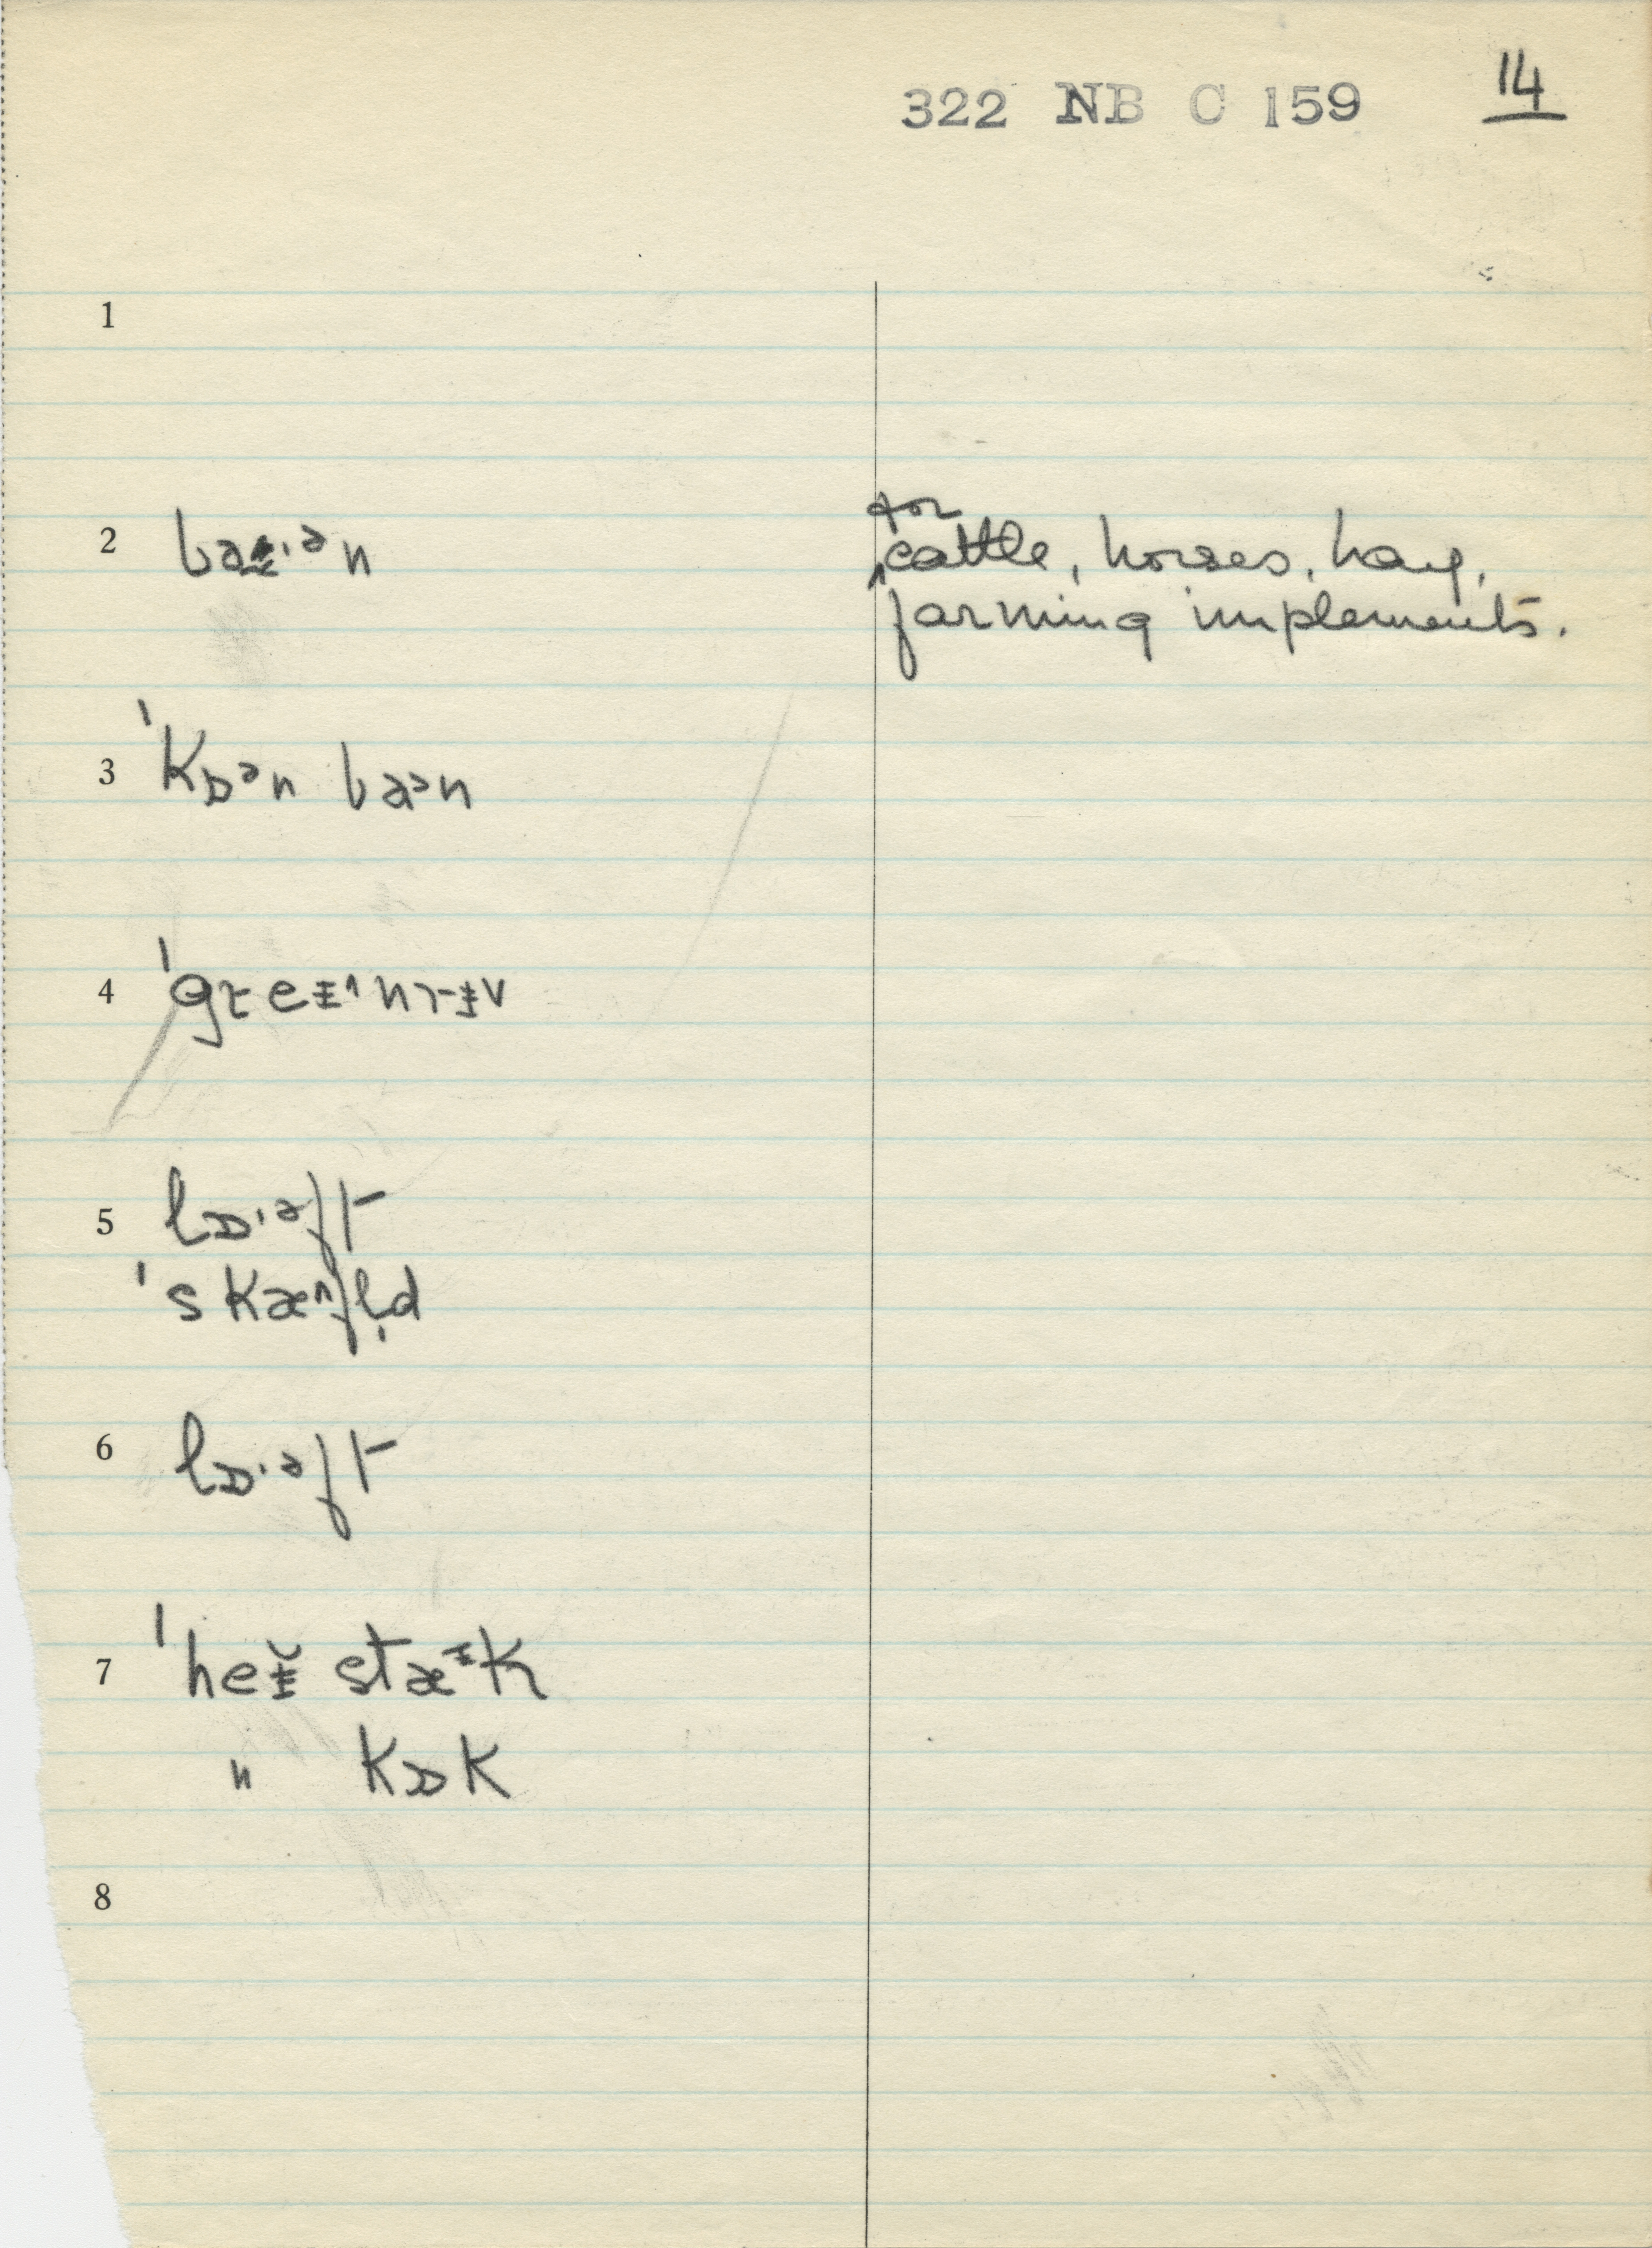 322 NB C 159 14
1
2
for
cattle, horses, hay,
farming implements.
3 ˈkɒᵊn baᵊn
4
5 lɒ·ᵊft
ˈskæᶺfl̩d
6 lɒ·ᵊft
7 ˈheɪ̆ stæᶦk
" kɒk
8